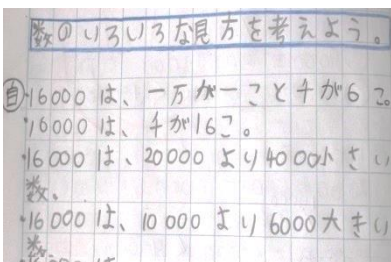 数のいろいろな見方を考えよう。
自・16000は、一万が一こと千が6こ。
・16000は、千が16こ。
・16000は、20000より4000小さい
数。
・16000は、10000より6000大きい
数。